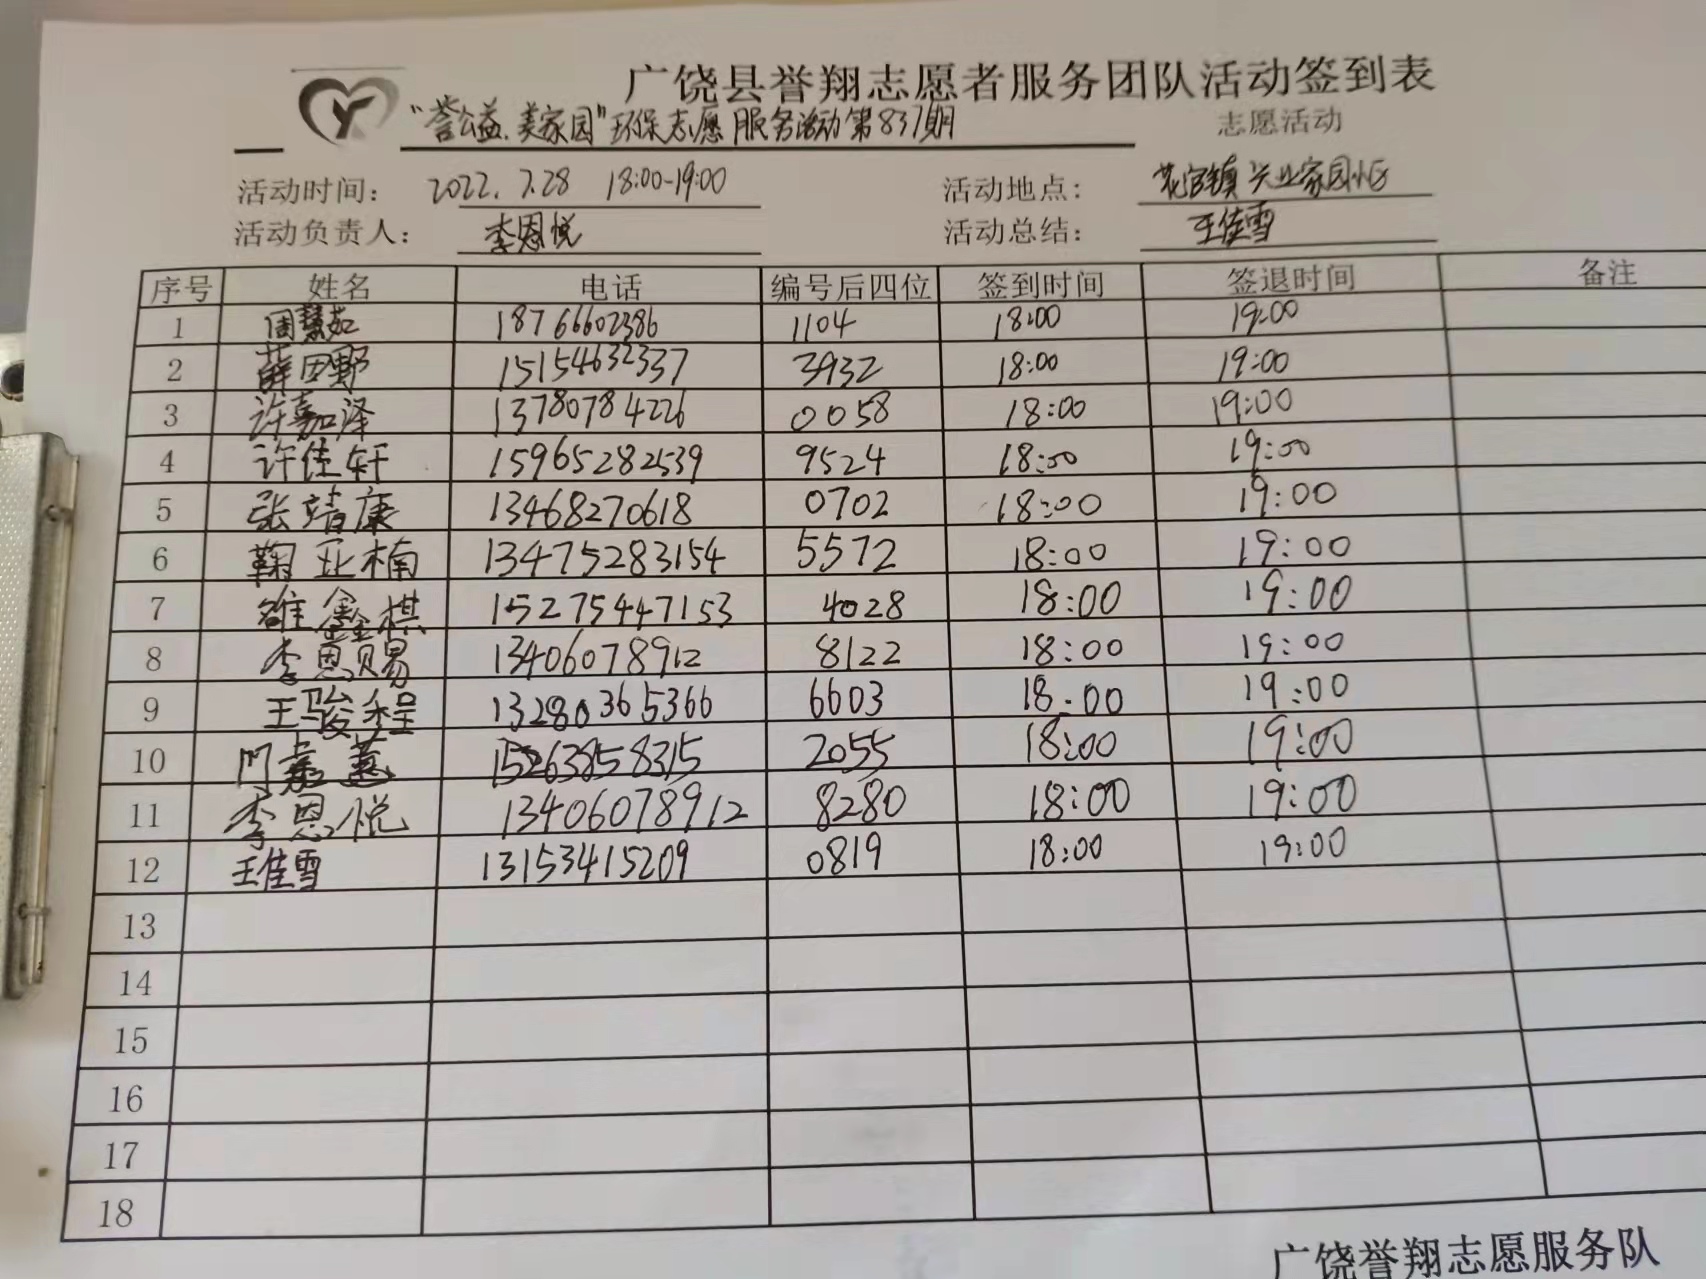 广饶县誉翔志愿者服务团队活动签到表
"誉公益、美家园"环保志愿服务活动第837期 志愿活动
活动时间: 2022.7.28 18:00-19:00 活动地点: 花官镇兴业家园小区
活动负责人: 李恩悦 活动总结: 王佳雪
序号 姓名 电话 编号后四位 签到时间 签退时间 备注
1 周慧茹 18766602386 1104 18:00 19:00
2 薛田野 15154632337 3932 18:00 19:00
3 许嘉泽 13780784226 0058 18:00 19:00
4 许佳轩 15965282539 9524 18:00 19:00
5 张靖康 13468270618 0702 18:00 19:00
6 鞠亚楠 13475283154 5572 18:00 19:00
7 鑫棋 15275447153 4028 18:00 19:00
8 李恩赐 13406078912 8122 18:00 19:00
9 王骏程 13280365366 6603 18:00 19:00
10 门嘉慧 15263858315 2055 18:00 19:00
11 李恩悦 13406078912 8280 18:00 19:00
12 王佳雪 13153415209 0819 18:00 19:00
13
14
15
16
17
18
广饶誉翔志愿服务队